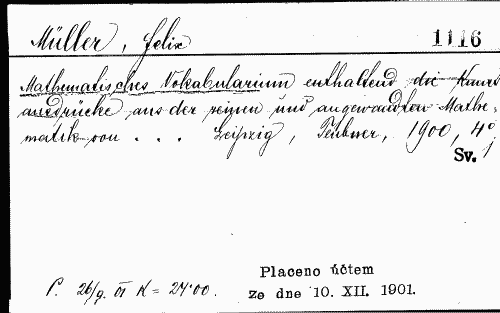 Müller, Felix 1116
Mathematisches Vokabularium enthaltend die Kunst
ausdrücke aus der reinen und angewandten Mathe-
matik von . . . Leipzig, Teubner, 1900, 4°
Sv. 1
P. 26/9. 01 K = 24·00.
Placeno účtem
ze dne 10. XII. 1901.